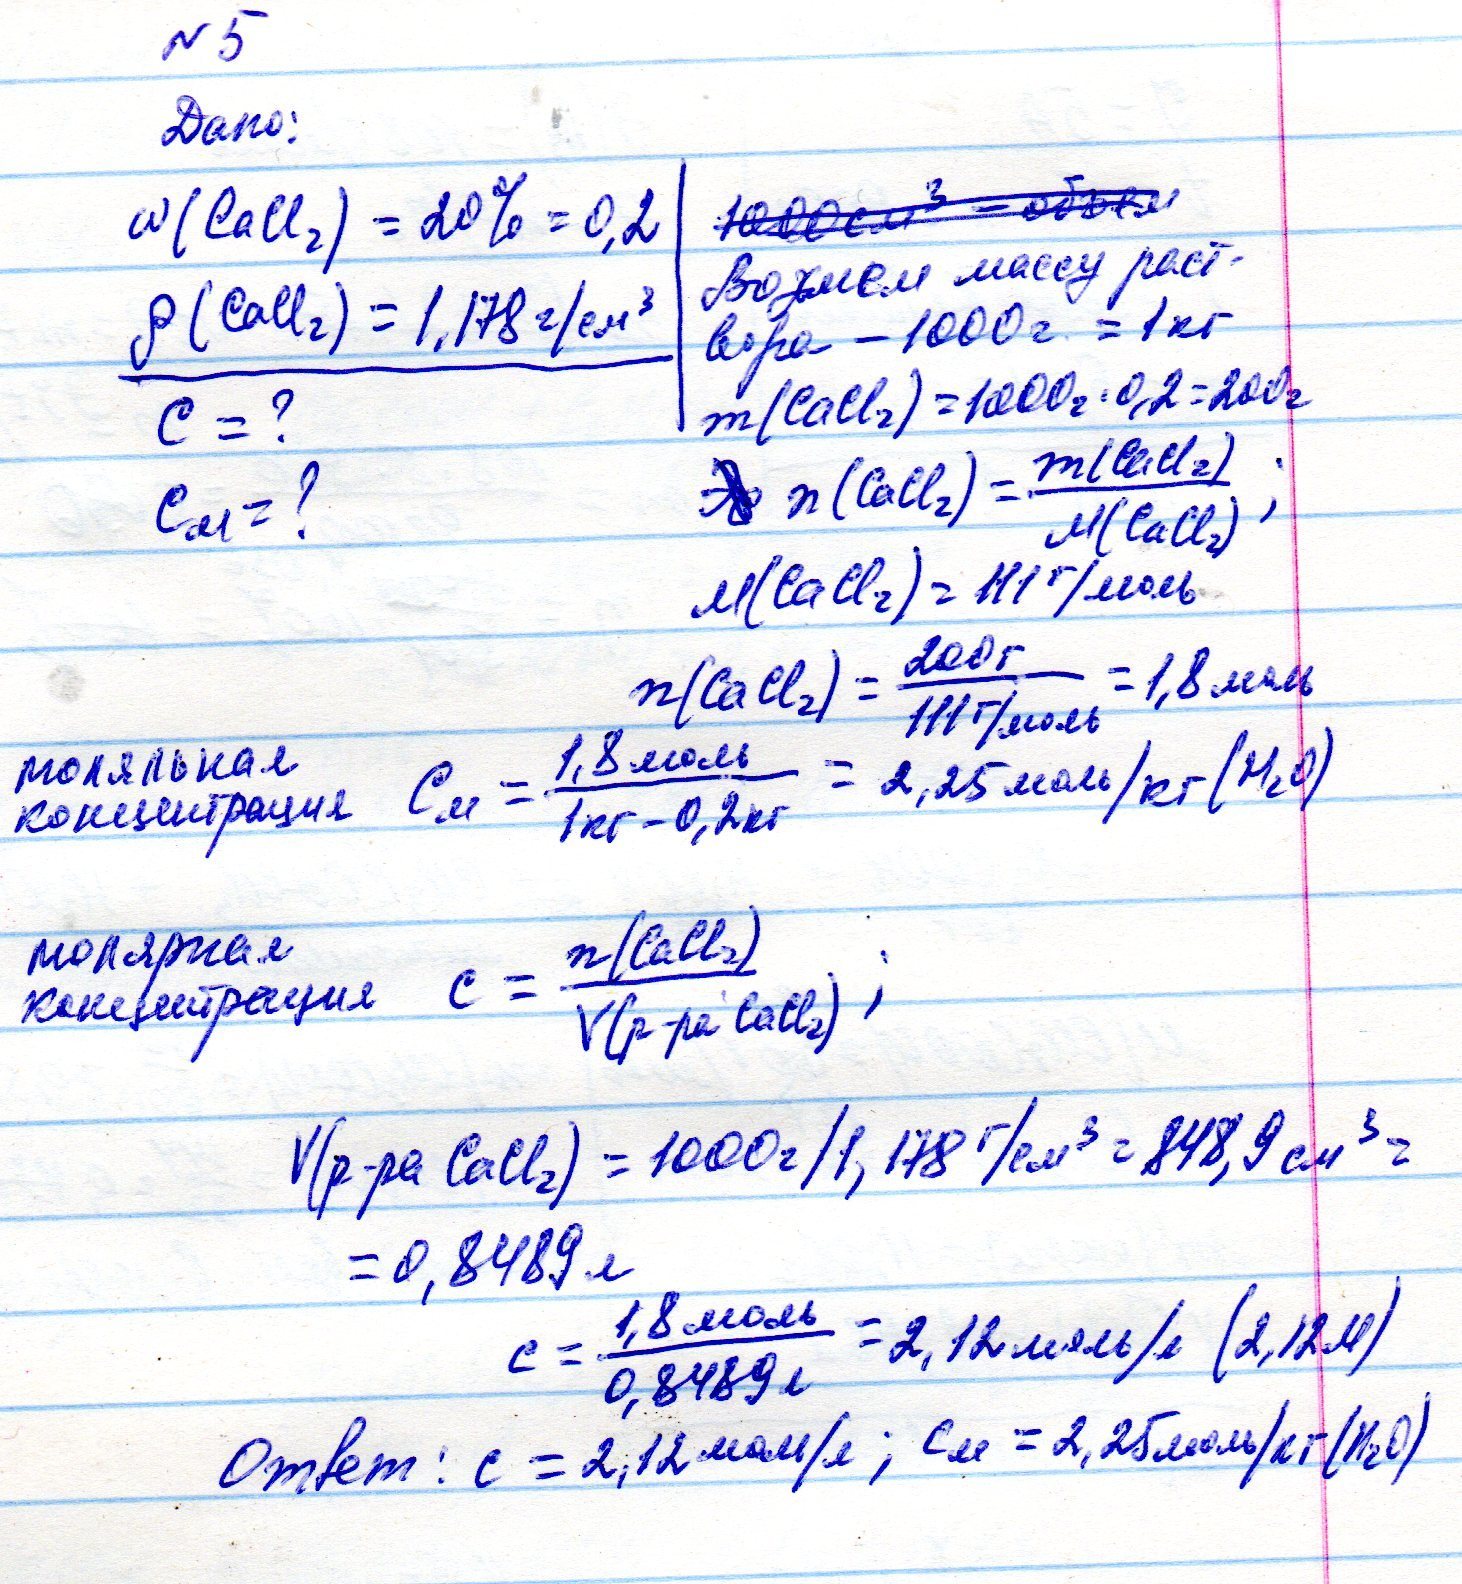 №5
Дано:
ω(CaCl₂) = 20% = 0,2
ρ(CaCl₂) = 1,178 г/см³
C = ?
Cм = ?
1000 см³ – объем
Возьмем массу раст-
вора – 1000 г. = 1 кг
m(CaCl₂) = 1000г · 0,2 = 200г
n(CaCl₂) = m(CaCl₂) / M(CaCl₂) ;
M(CaCl₂) = 111 г/моль
n(CaCl₂) = 200г / 111 г/моль = 1,8 моль
моляльная
концентрация Cм = 1,8 моль / 1кг – 0,2кг = 2,25 моль/кг (H₂O)
молярная
концентрация c = n(CaCl₂) / V(р-ра CaCl₂) ;
V(р-ра CaCl₂) = 1000г/1,178 г/см³ = 848,9 см³ =
= 0,8489 л
c = 1,8 моль / 0,8489 л = 2,12 моль/л (2,12М)
Ответ: c = 2,12 моль/л ; Cм = 2,25 моль/кг (H₂O)